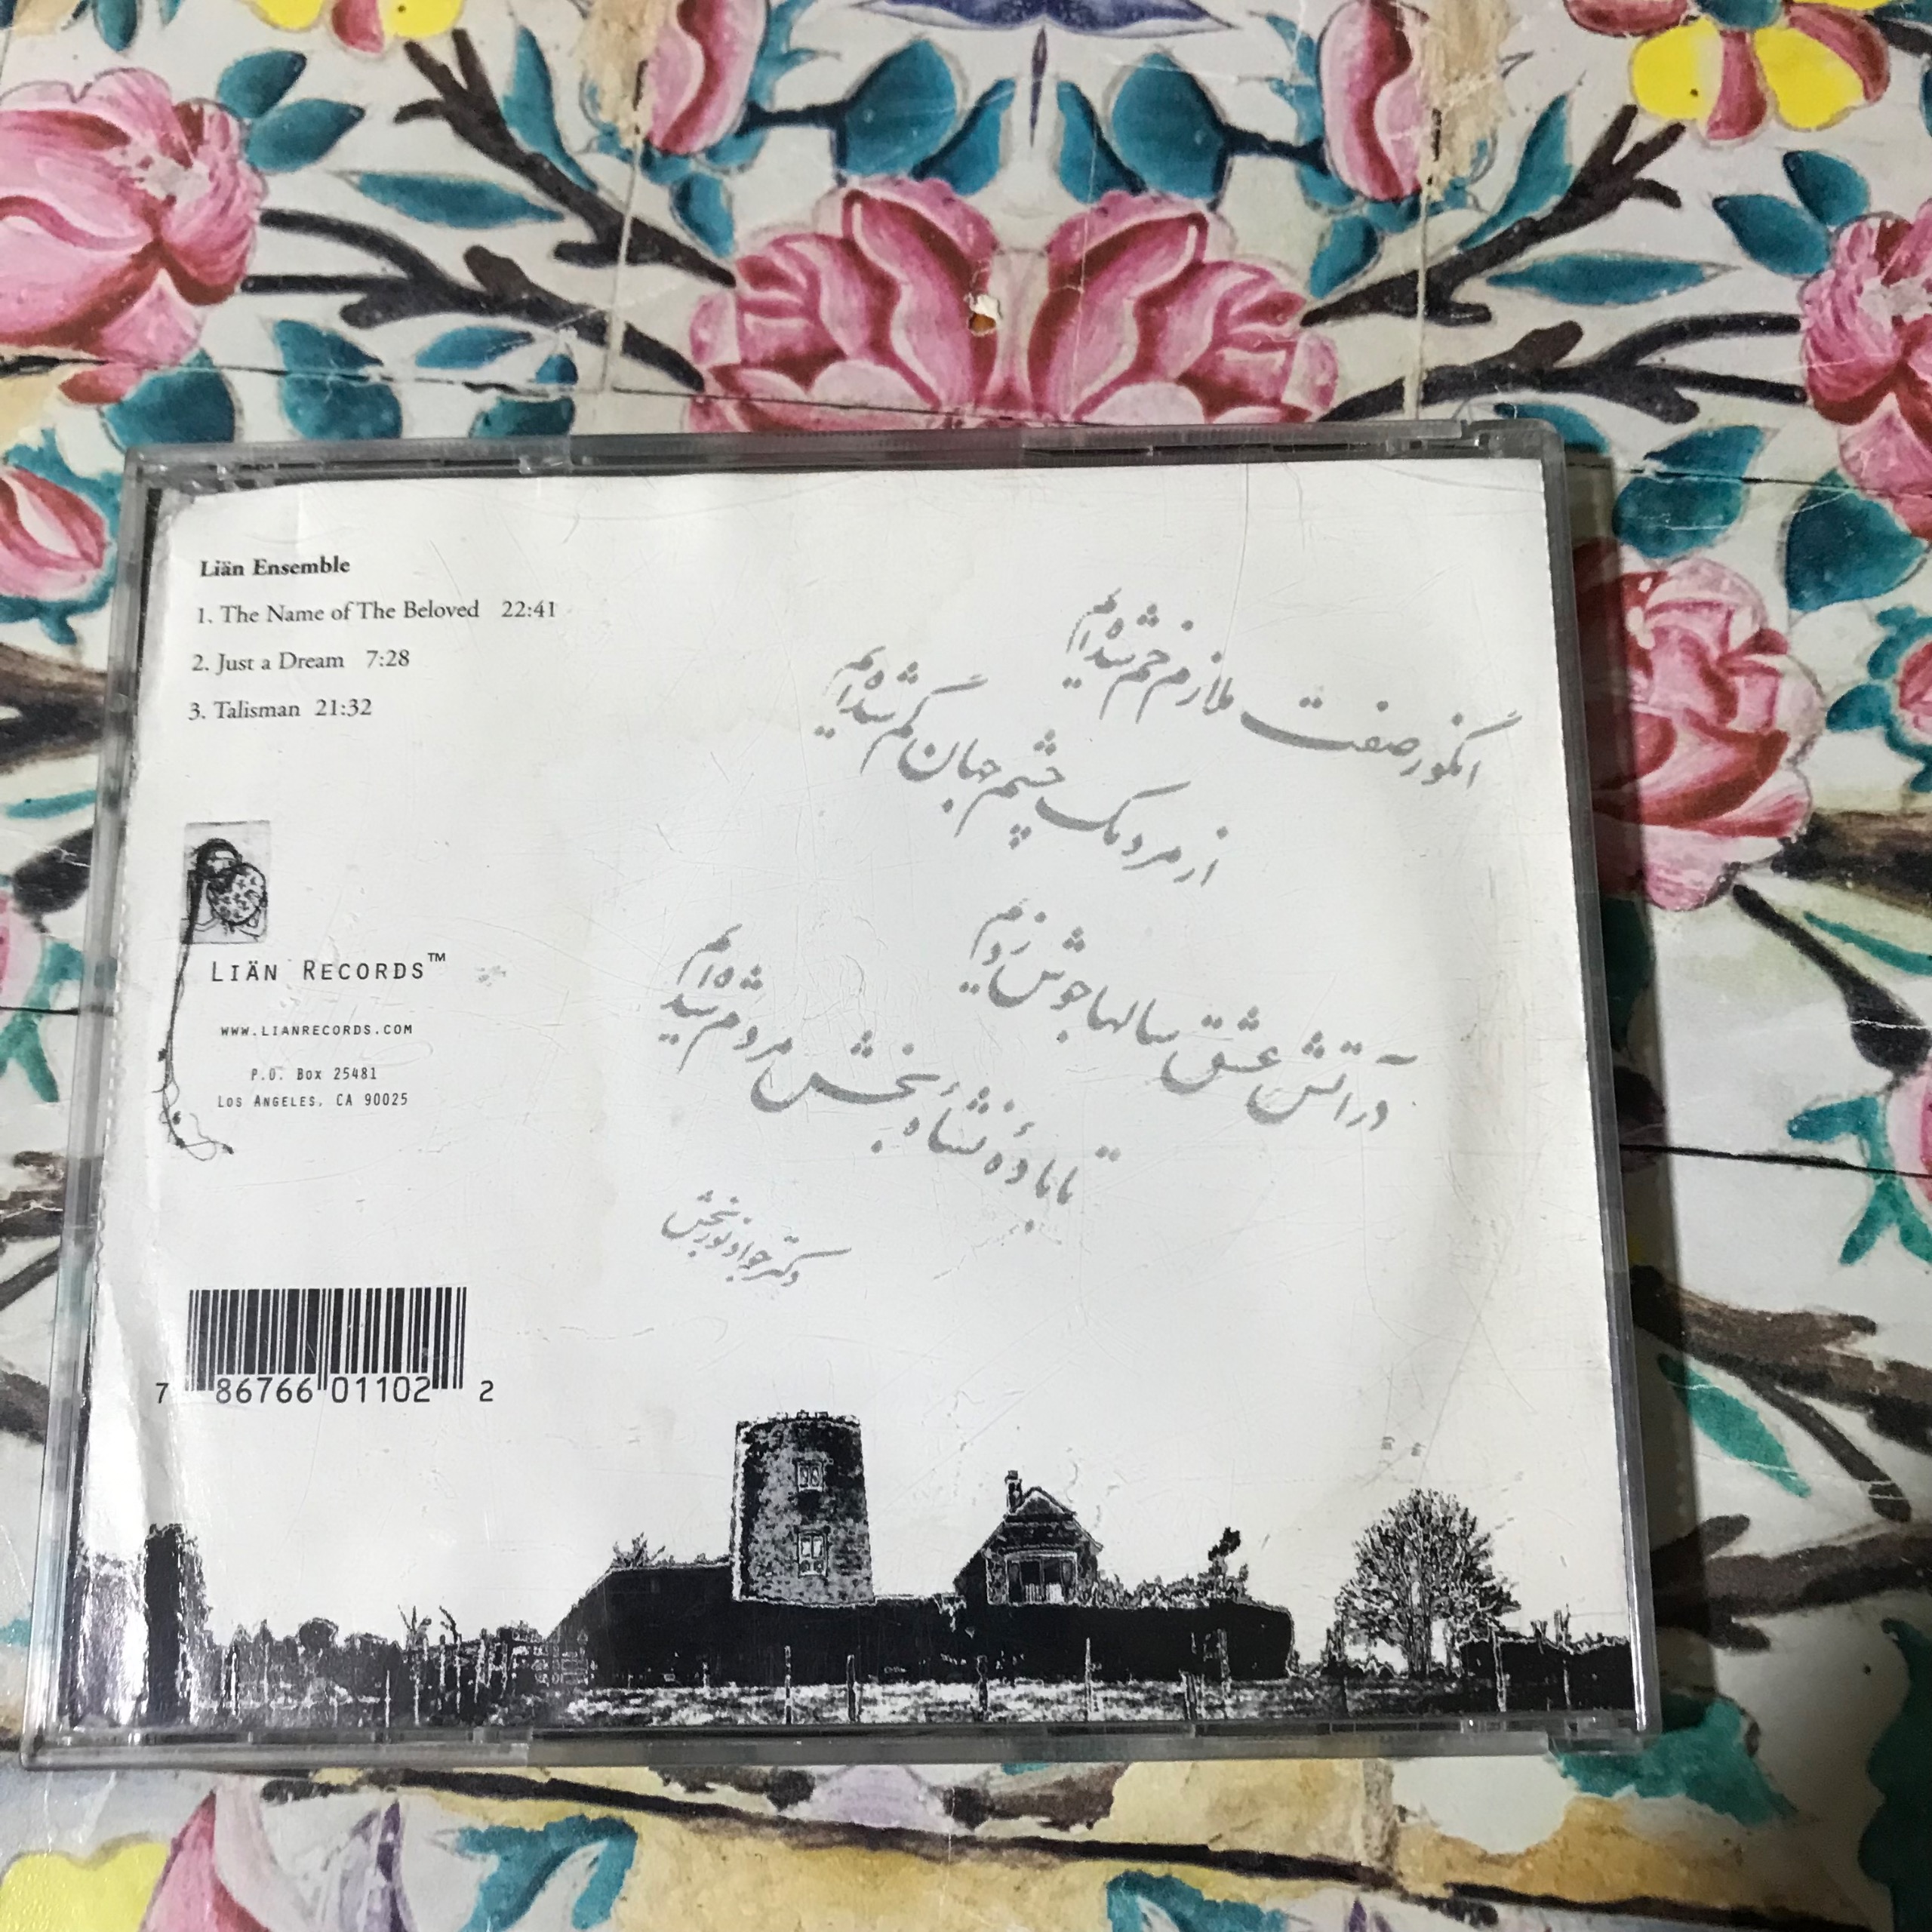 Liän Ensemble
1. The Name of The Beloved 22:41
2. Just a Dream 7:28
3. Talisman 21:32
انگور صفت ملازم خم شده‌ایم
از مردمک چشم جهان گم شده‌ایم
در آتش عشق سالها جوش زدیم
تا بادهٔ نشأه بخش مردم شده‌ایم
دکتر جواد نوربخش
LIÄN RECORDS™
WWW.LIANRECORDS.COM
P.O. Box 25481
LOS ANGELES, CA 90025
7 86766 01102 2